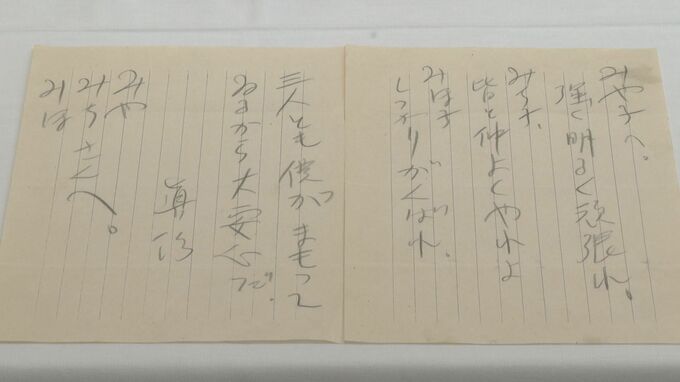 みや子へ。
強く明るく頑張れ。
みち子、
皆と仲よくやれよ
みほ子
しっかりがんばれ。
三人とも僕がまもって
ゐるから大安心だ。
みや
みち さんへ。
みほ